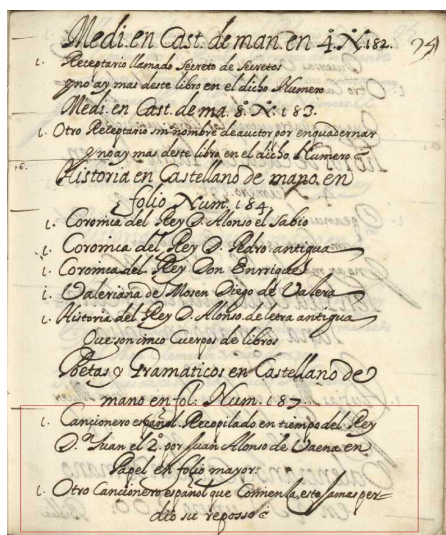 Medi. en Cast. de man. en 4.º N.º 182.
1. Receptario llamado Secreto de Secretos
y no ay mas deste libro en el dicho Numero
Medi. en Cast. de ma. 8.º N.º 183.
1. Otro Receptario sin nombre de auctor por enquadernar
y no ay mas deste libro en el dicho Numero
Historia en Castellano de mano en
folio Num. 184.
1. Coronica del Rey D. Alonso el Sabio
1. Coronica del Rey D. Pedro antigua
1. Coronica del Rey Don Enrrique
1. Valeriana de Mosen Diego de Valera
1. Historia del Rey D. Alonso de letra antigua
Que son cinco Cuerpos de libros
Poetas y Gramaticos en Castellano de
mano en fol. Num. 187.
1. Cancionero español Recopilado en tiempo del Rey
D. Juan el 2.º por Juan Alonso de Vaena en
Papel en folio mayor.
1. Otro Cancionero español que Comienza, este jamas per-
dio su reposso